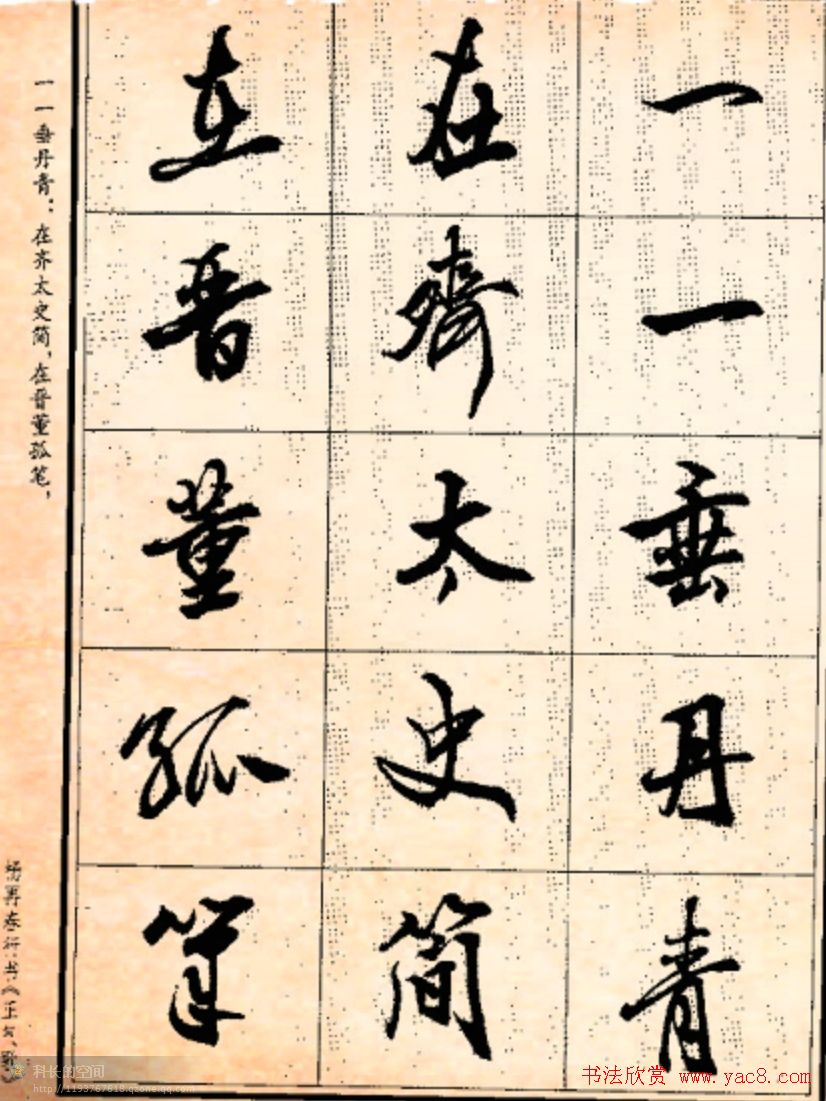 一一垂丹青
在齊太史简
在晋董孤筆
一一垂丹青：在齐太史简，在晋董孤笔，
杨再春行书《正气歌》
科长的空间
http://1193767618.qzone.qq.com
书法欣赏 www.yac8.com